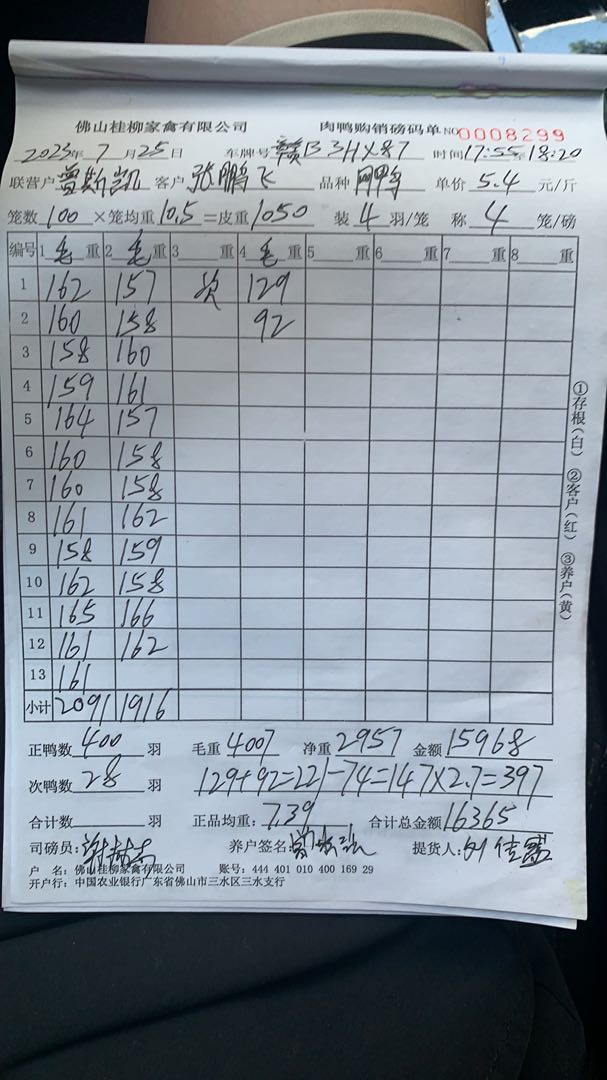 佛山桂柳家禽有限公司 肉鸭购销磅码单 NO 0008299
2023年 7 月 25 日 车牌号 赣B3HX87 时间 17:55至18:20
联营户 曾斯凯 客户 张鹏飞 品种 网鸭 单价 5.4 元/斤
笼数 100 ×笼均重 10.5 =皮重 1050 装 4 羽/笼 称 4 笼/磅
编号 1 毛 重 2 毛 重 3 重 4 毛 重 5 重 6 重 7 重 8 重
1 162 157 次 129
2 160 158 92
3 158 160
4 159 161
5 164 157
6 160 158
7 160 158
8 161 162
9 158 159
10 162 158
11 165 166
12 161 162
13 161
小计 2091 1916
正鸭数 400 羽 毛重 4007 净重 2957 金额 15968
次鸭数 28 羽 129+92=221-74=147×2.7=397
合计数 羽 正品均重: 7.39 合计总金额 16365
司磅员: 养户签名 提货人:
户 名: 佛山桂柳家禽有限公司 账号: 444 401 010 400 169 29
开户行: 中国农业银行广东省佛山市三水区三水支行
①存根(白) ②客户(红) ③养户(黄)